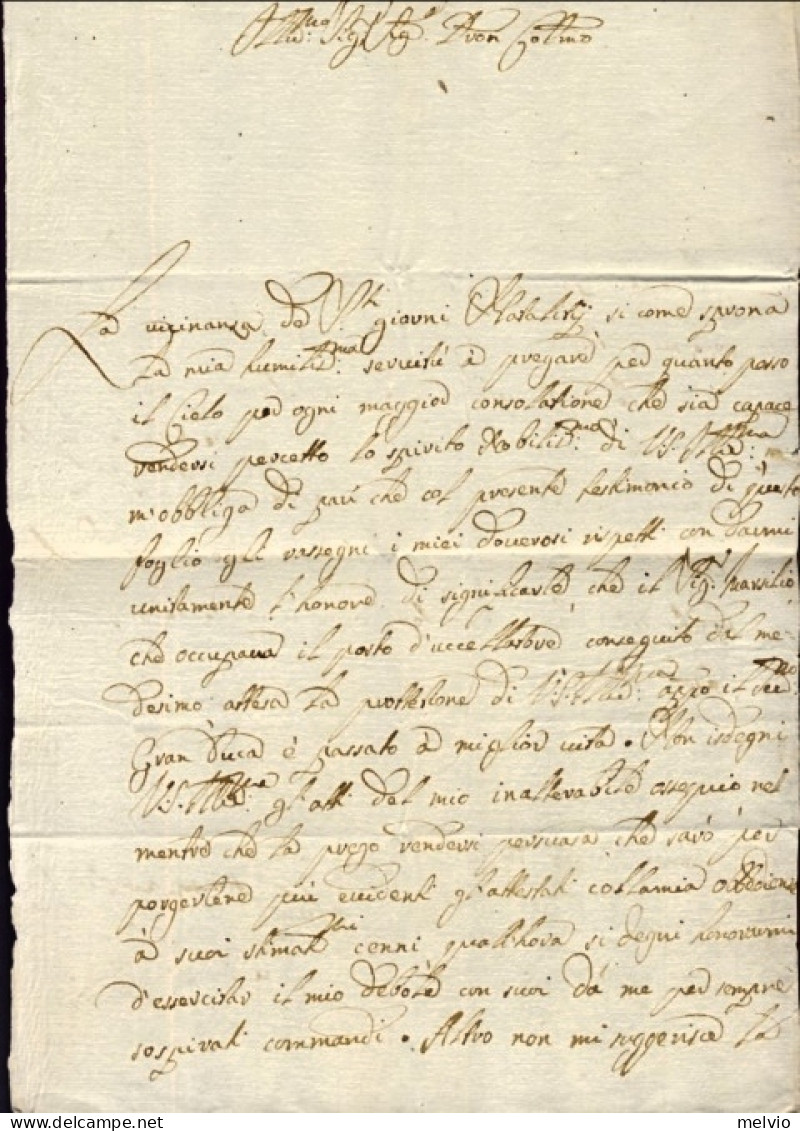 Illu.mo Sig.r Sig.r Pron Col.mo
La vicinanza de S.ti giorni Natalitij si come sprona
la mia humiliss.ma servitù à pregare per quanto posso
il Cielo per ogni maggior consolatione che sia capace
rendersi percetto lo spirito Nobiliss.mo di V.S. Ill.ma
m'obbliga di pari che col presente testimonio di questo
foglio gli rassegni i miei doverosi rispetti con darmi
unitamente l'honore di significarle che il Sig.r Marsilio
che occupava il posto d'uccellatore conseguito dal me-
desimo attesa la protterione di V.S. Ill.ma appo il Ser.mo
Gran Duca è passato à miglior vita. Non isdegni
V.S. Ill.ma gl'atti del mio inalterabile ossequio nel
mentre che la prego rendersi persuasa che sarò per
porgerlene più evidenti gl'attestati colla mia obbedienz
à suoi stimat.mi cenni quall'hora si degni honorarmi
d'essercitar il mio debole con suoi da me per sempre
sospirati commandi. Altro non mi suggerisce la
melvio